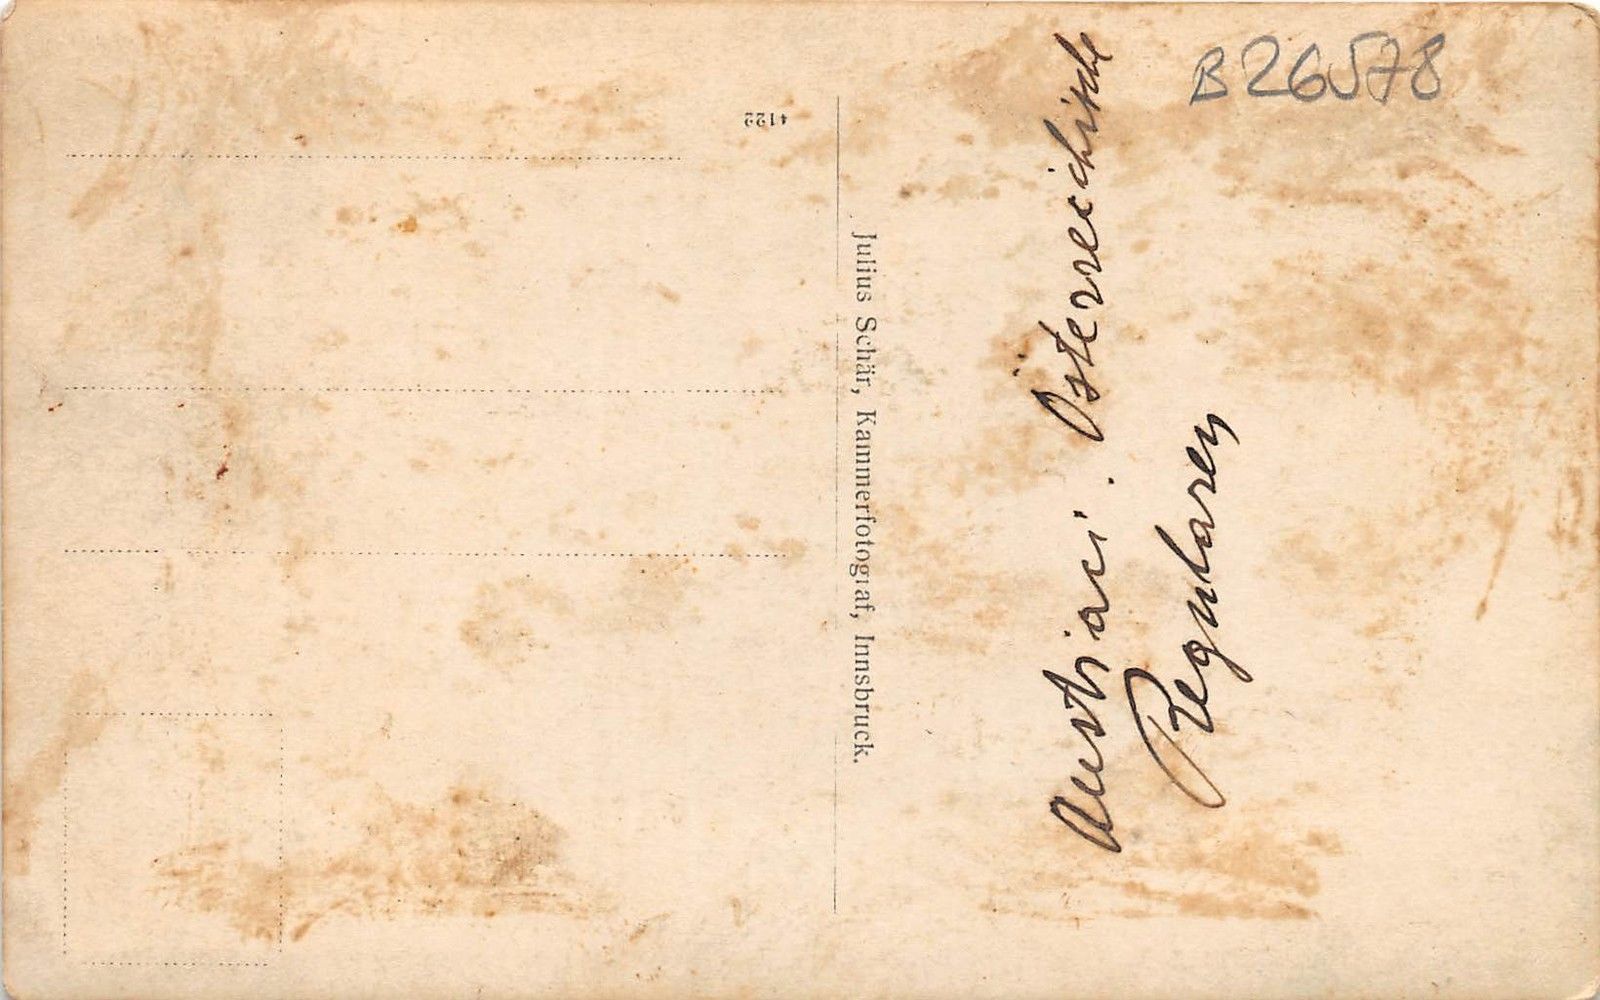 B26578
4122
Julius Schär, Kammerfotograf, Innsbruck.
Austriaci. Österreichische